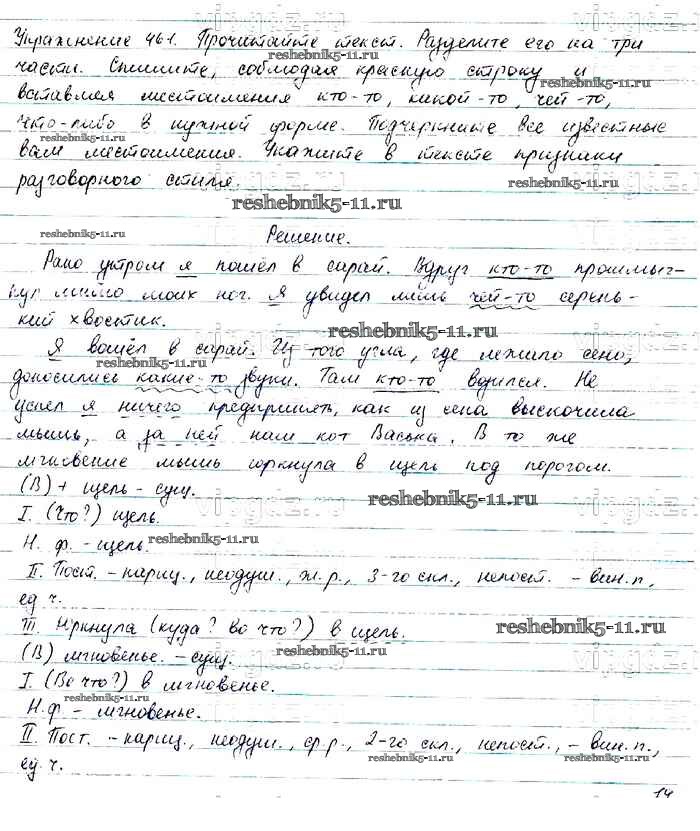 Упражнение 461. Прочитайте текст. Разделите его на три
части. Спишите, соблюдая красную строку и
вставляя местоимения кто-то, какой-то, чей-то,
что-либо в нужной форме. Подчеркните все известные
вам местоимения. Укажите в тексте признаки
разговорного стиля.
Решение.
Рано утром я пошёл в сарай. Вдруг кто-то прошмыг-
нул мимо моих ног. Я увидел лишь чей-то серень-
кий хвостик.
Я вошёл в сарай. Из того угла, где лежило сено,
доносились какие-то звуки. Там кто-то возился. Не
успел я ничего предпринять, как из сена выскочила
мышь, а за ней наш кот Васька. В то же
мгновение мышь юркнула в щель под порогом.
(В) + щель - сущ.
I. (Что?) щель.
Н. ф. - щель.
II. Пост. - нариц., неодуш., ж.р., 3-го скл., непост. - вин.п.,
ед.ч.
III. Юркнула (куда? во что?) в щель.
(В) мгновенье. - сущ.
I. (Во что?) в мгновенье.
Н.ф - мгновенье.
II. Пост. - нариц., неодуш., ср.р., 2-го скл., непост., - вин.п.,
ед.ч.
14
reshebnik5-11.ru
vipgdz.ru